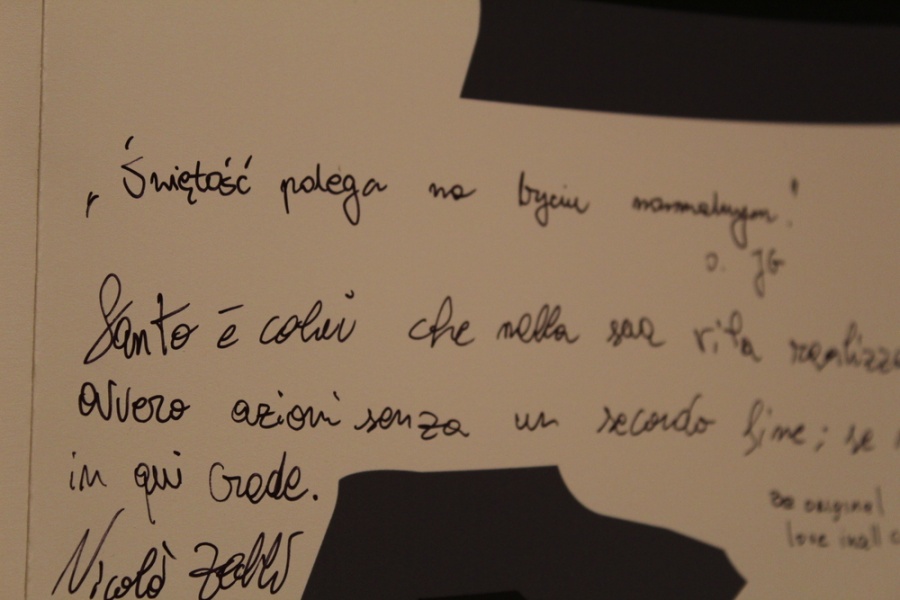 „Świętość polega na byciu normalnym!
o. JG
Santo è colui che nella sua vita realizza
ovvero azioni senza un secondo fine; se
in qui crede.
Nicolò
be original
love in all